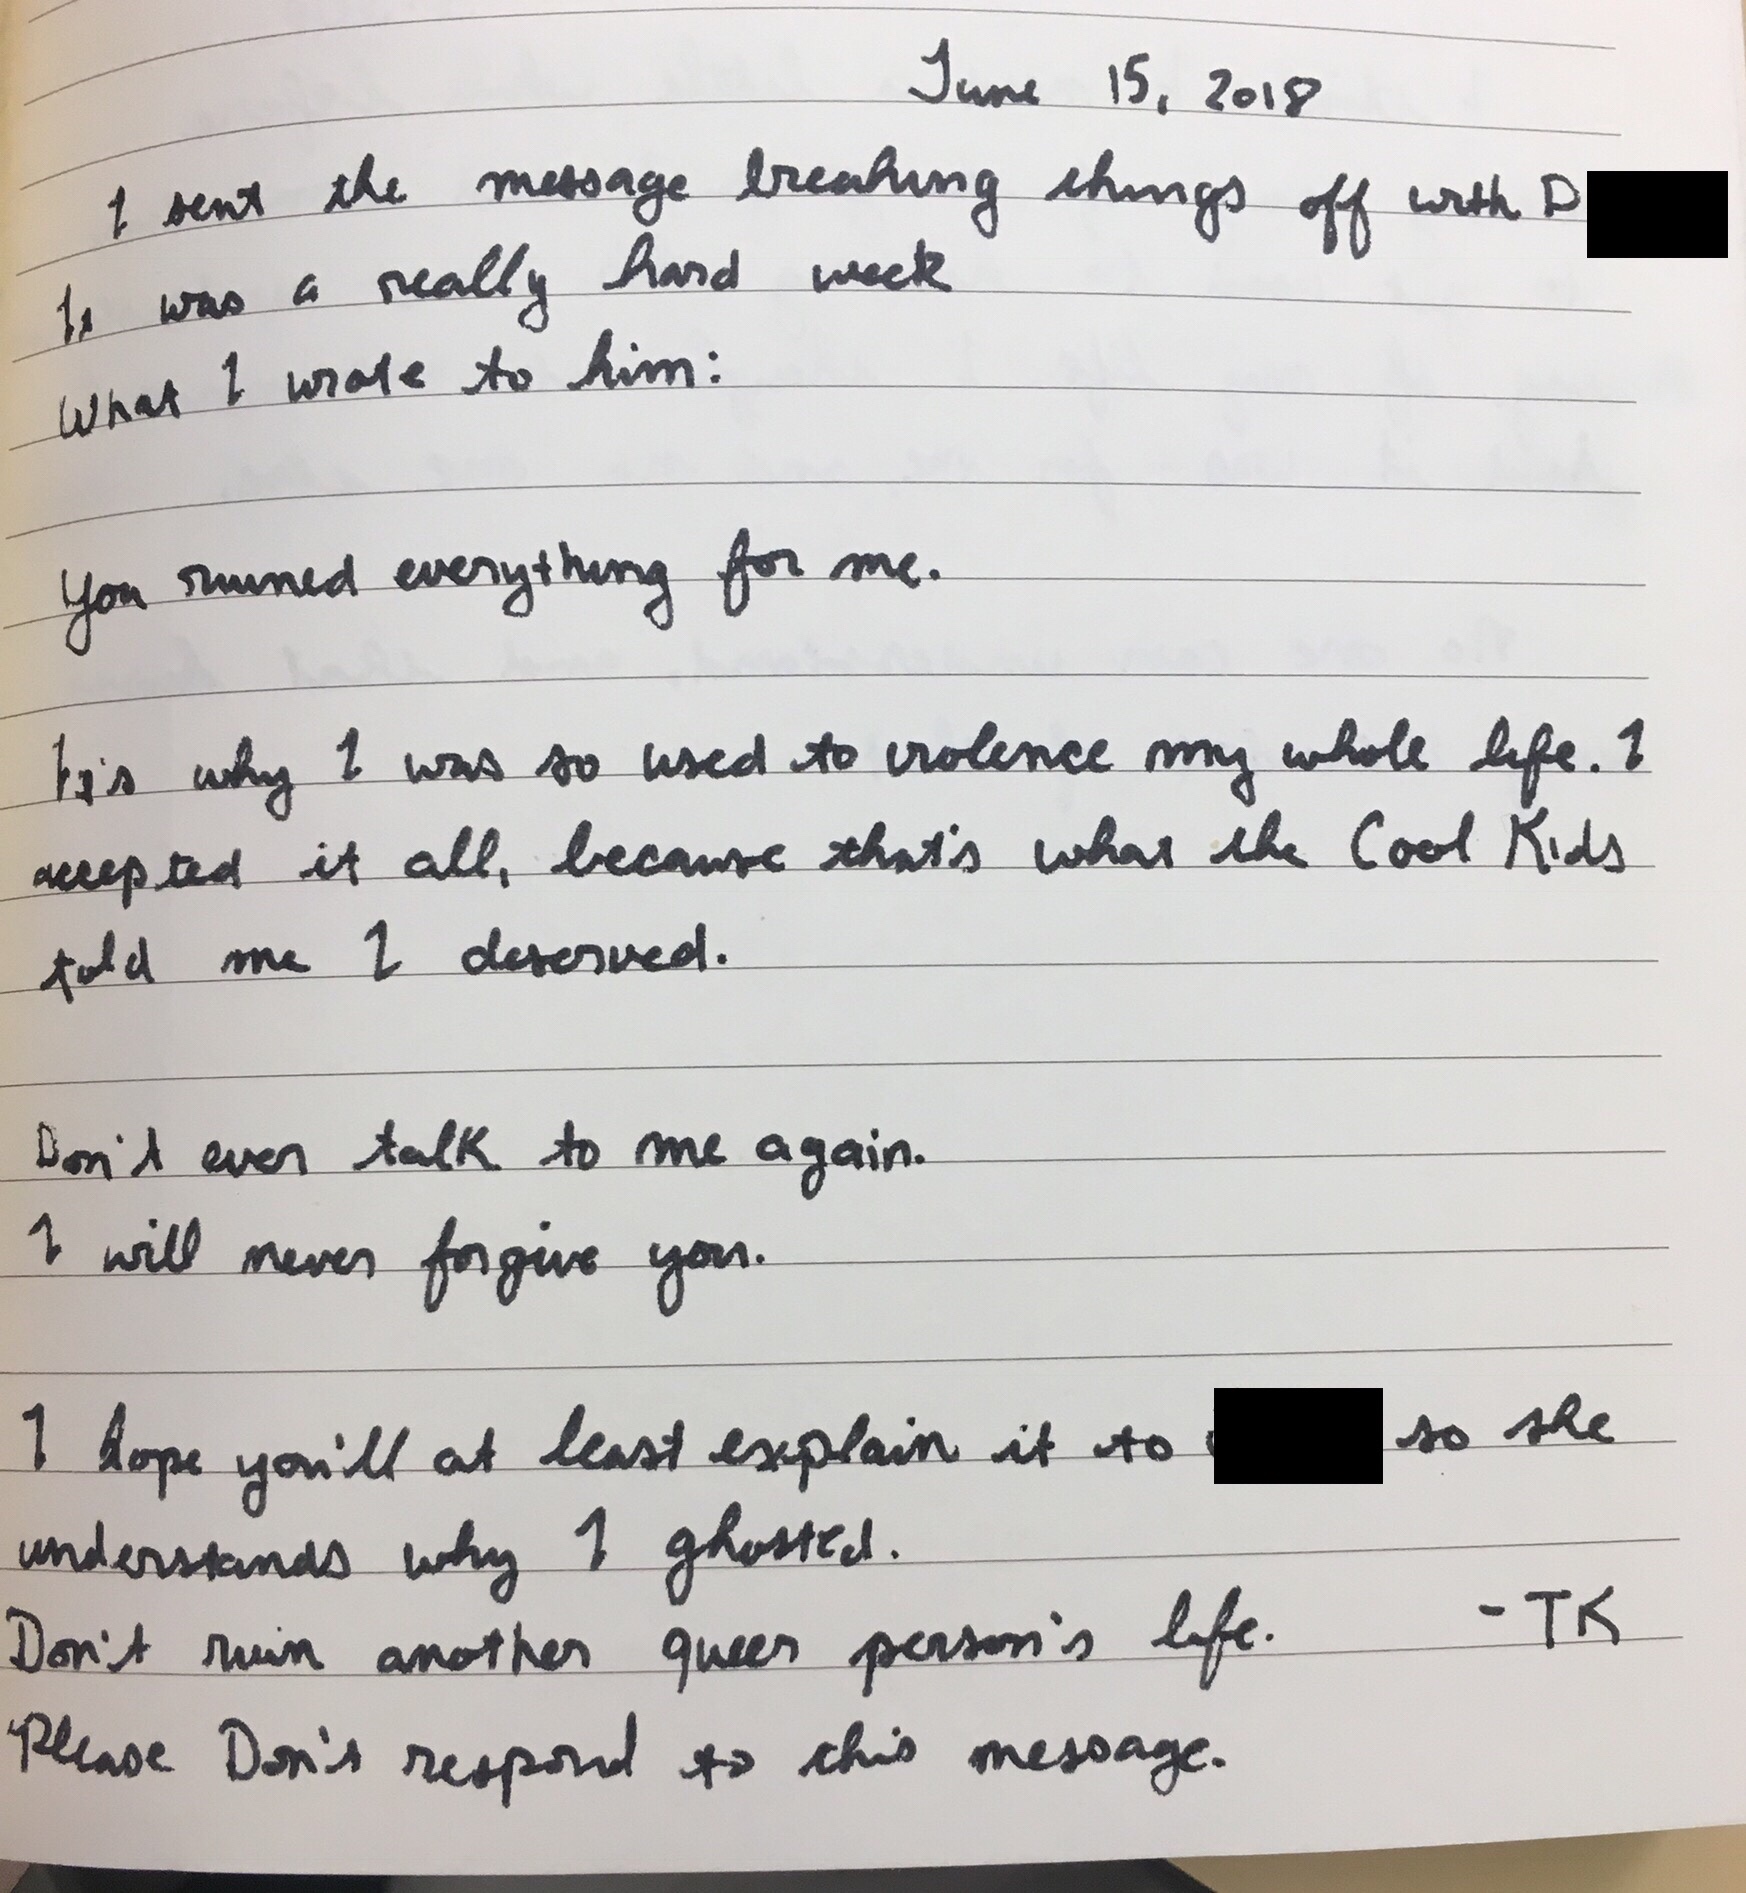 June 15, 2018
I sent the message breaking things off with D
It was a really hard week
What I wrote to him:
You ruined everything for me.
It's why I was so used to violence my whole life. I
accepted it all, because that's what the Cool Kids
told me I deserved.
Don't ever talk to me again.
I will never forgive you.
I hope you'll at least explain it to so she
understands why I ghosted.
Don't ruin another queer person's life. - TK
Please Don't respond to this message.